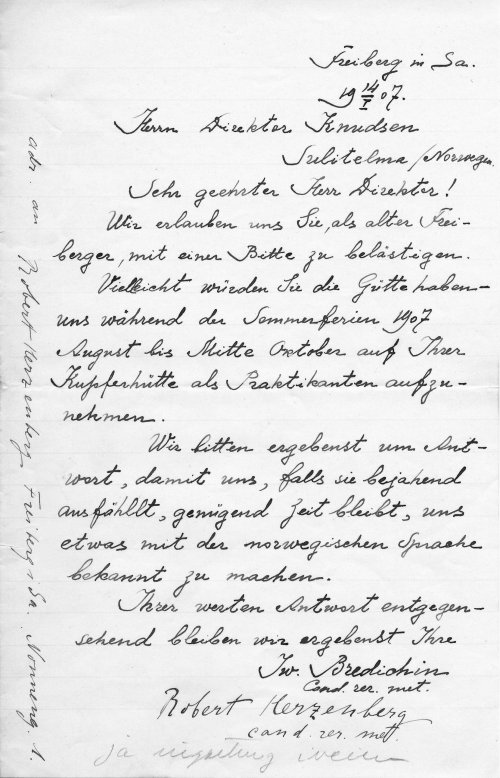 Freiberg in Sa.
19 14/I 07.
Herrn Direktor Knudsen
Sulitelma / Norwegen.
Sehr geehrter Herr Direktor!
Wir erlauben uns Sie, als alter Frei-
berger, mit einer Bitte zu belästigen.
Vielleicht würden Sie die Gütte haben-
uns während der Sommerferien 1907
August bis Mitte Oktober auf Ihrer
Kupferhütte als Praktikanten aufzu-
nehmen.
Wir bitten ergebenst um Ant-
wort, damit uns, falls sie bejahend
ausfählt, genügend Zeit bleibt, uns
etwas mit der norwegischen Sprache
bekannt zu machen.
Ihrer werten Antwort entgegen-
sehend bleiben wir ergebenst Ihre
Iw. Bredichin
Cand. rer. met.
Robert Herzenberg
cand. rer. met.
ja
adr. an Robert Herzenberg Freiberg i Sa. Nonneng. 1.